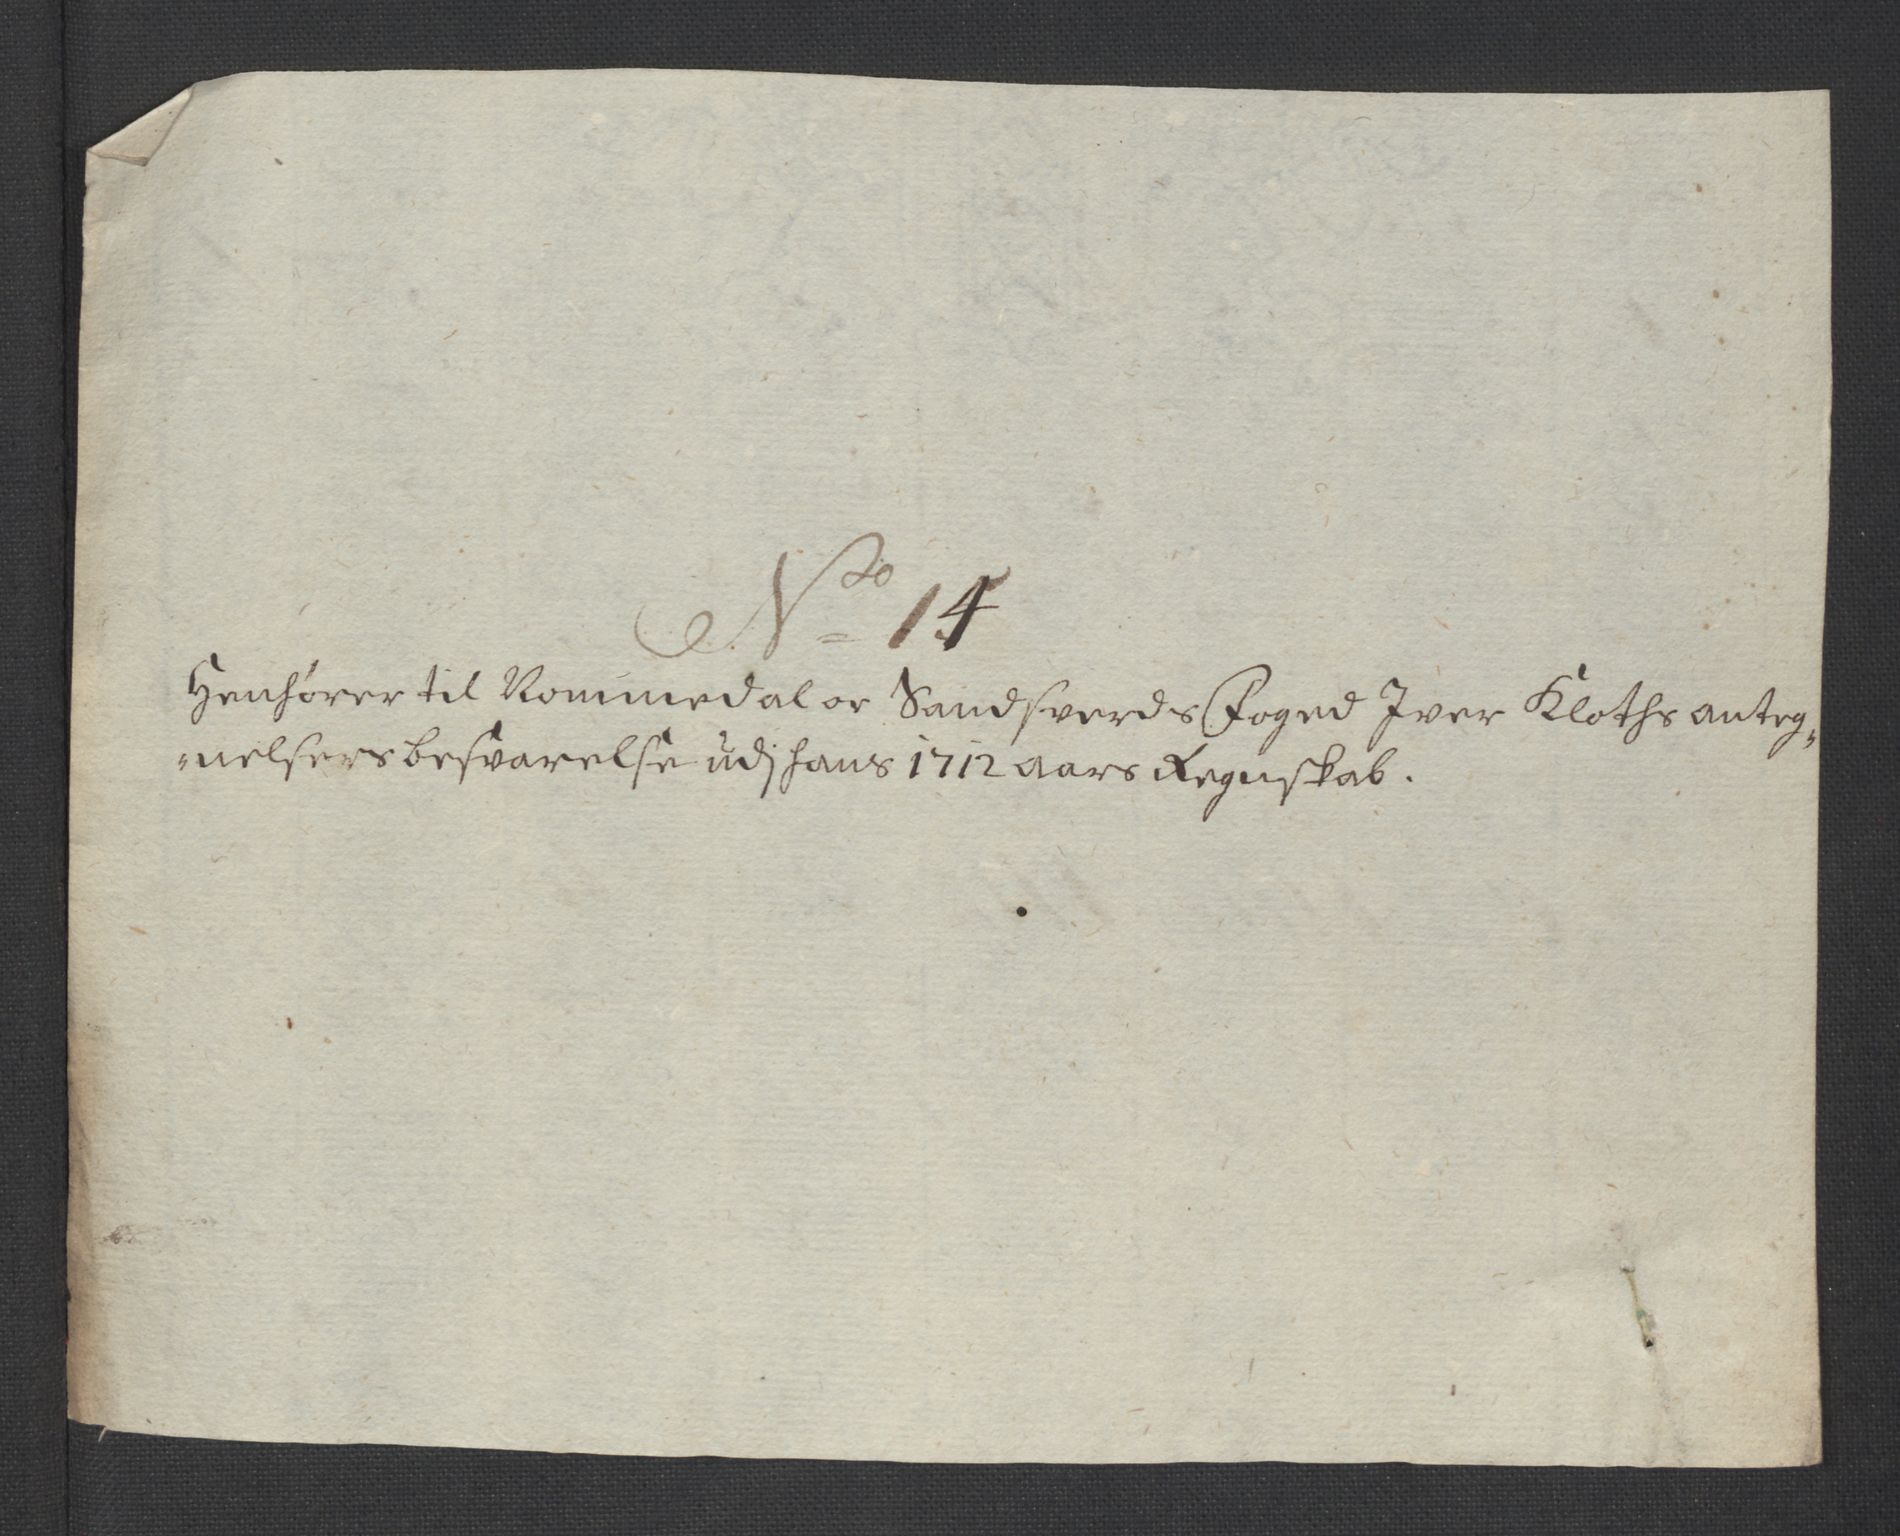 No 14
Henhører til Nommedal oc Sandsverds Foged Iver Kloths anteg„
„nelsers besvarelse udj hans 1712 aars Regnskab.